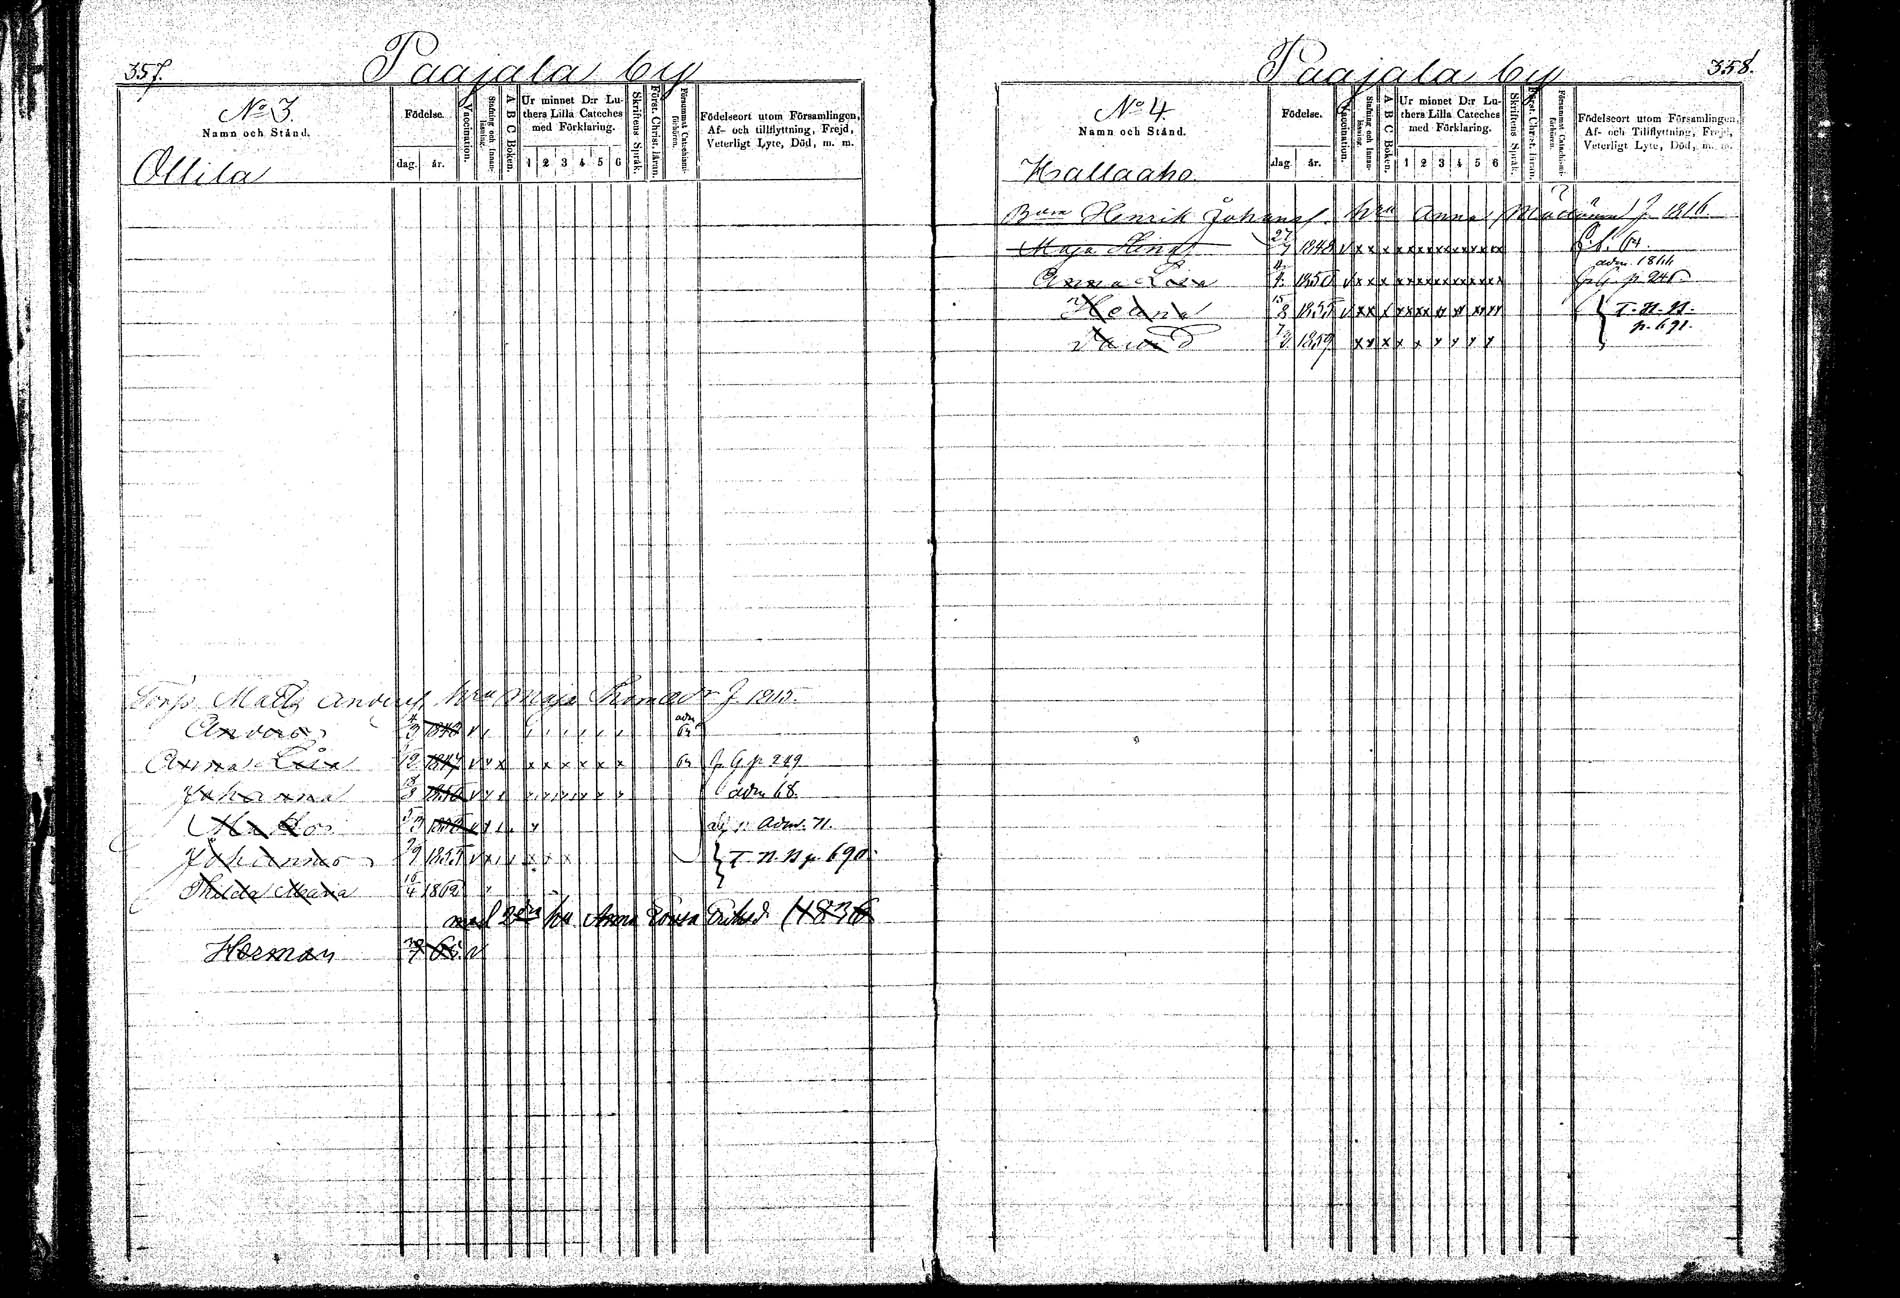 357.
Paajala by
No 3.
Namn och Stånd.
Födelse.
dag. år.
Vaccination.
Stafning och Innanläsning.
A B C Boken.
Ur minnet D:r Luthers Lilla Cateches med Förklaring.
1 2 3 4 5 6
Skriftens Språk.
Först. Christ. läran.
Försummat Catechismiförhören.
Födelseort utom Församlingen,
Af- och tillflyttning, Frejd,
Veterligt Lyte, Död, m. m.
Ollila
Torp. Matts Anders hru Maja Thomasdr f. 1815.
Anders 4/3 1843 adm 63
Anna Lisa 12 1847 63 f. G p 249
Johanna 18/8 1850 adm 68.
Mattos 5/3 1853 adm. 71.
Johannes 29/9 1855 T. N. B p. 690.
Thilda Maria 16/4 1862
med 2dra hu. Anna Lovisa Eriksd. (1836
Herman 65. v
358.
Paajala by
No 4.
Namn och Stånd.
Födelse.
dag. år.
Vaccination.
Stafning och Innanläsning.
A B C Boken.
Ur minnet D:r Luthers Lilla Cateches med Förklaring.
1 2 3 4 5 6
Skriftens Språk.
Först. Christ. läran.
Försummat Catechismiförhören.
Födelseort utom Församlingen,
Af- och Tillflyttning, Frejd,
Veterligt Lyte, Död, m. m.
Hallaaho.
Henrik Johans hru Anna f. 1816
Maja Stina 27/7 1848 64.
adm. 1866
Anna Lisa 4/4 1850 p. 246
15/8 1855 T. N. B.
p. 691.
David 7/3 1859